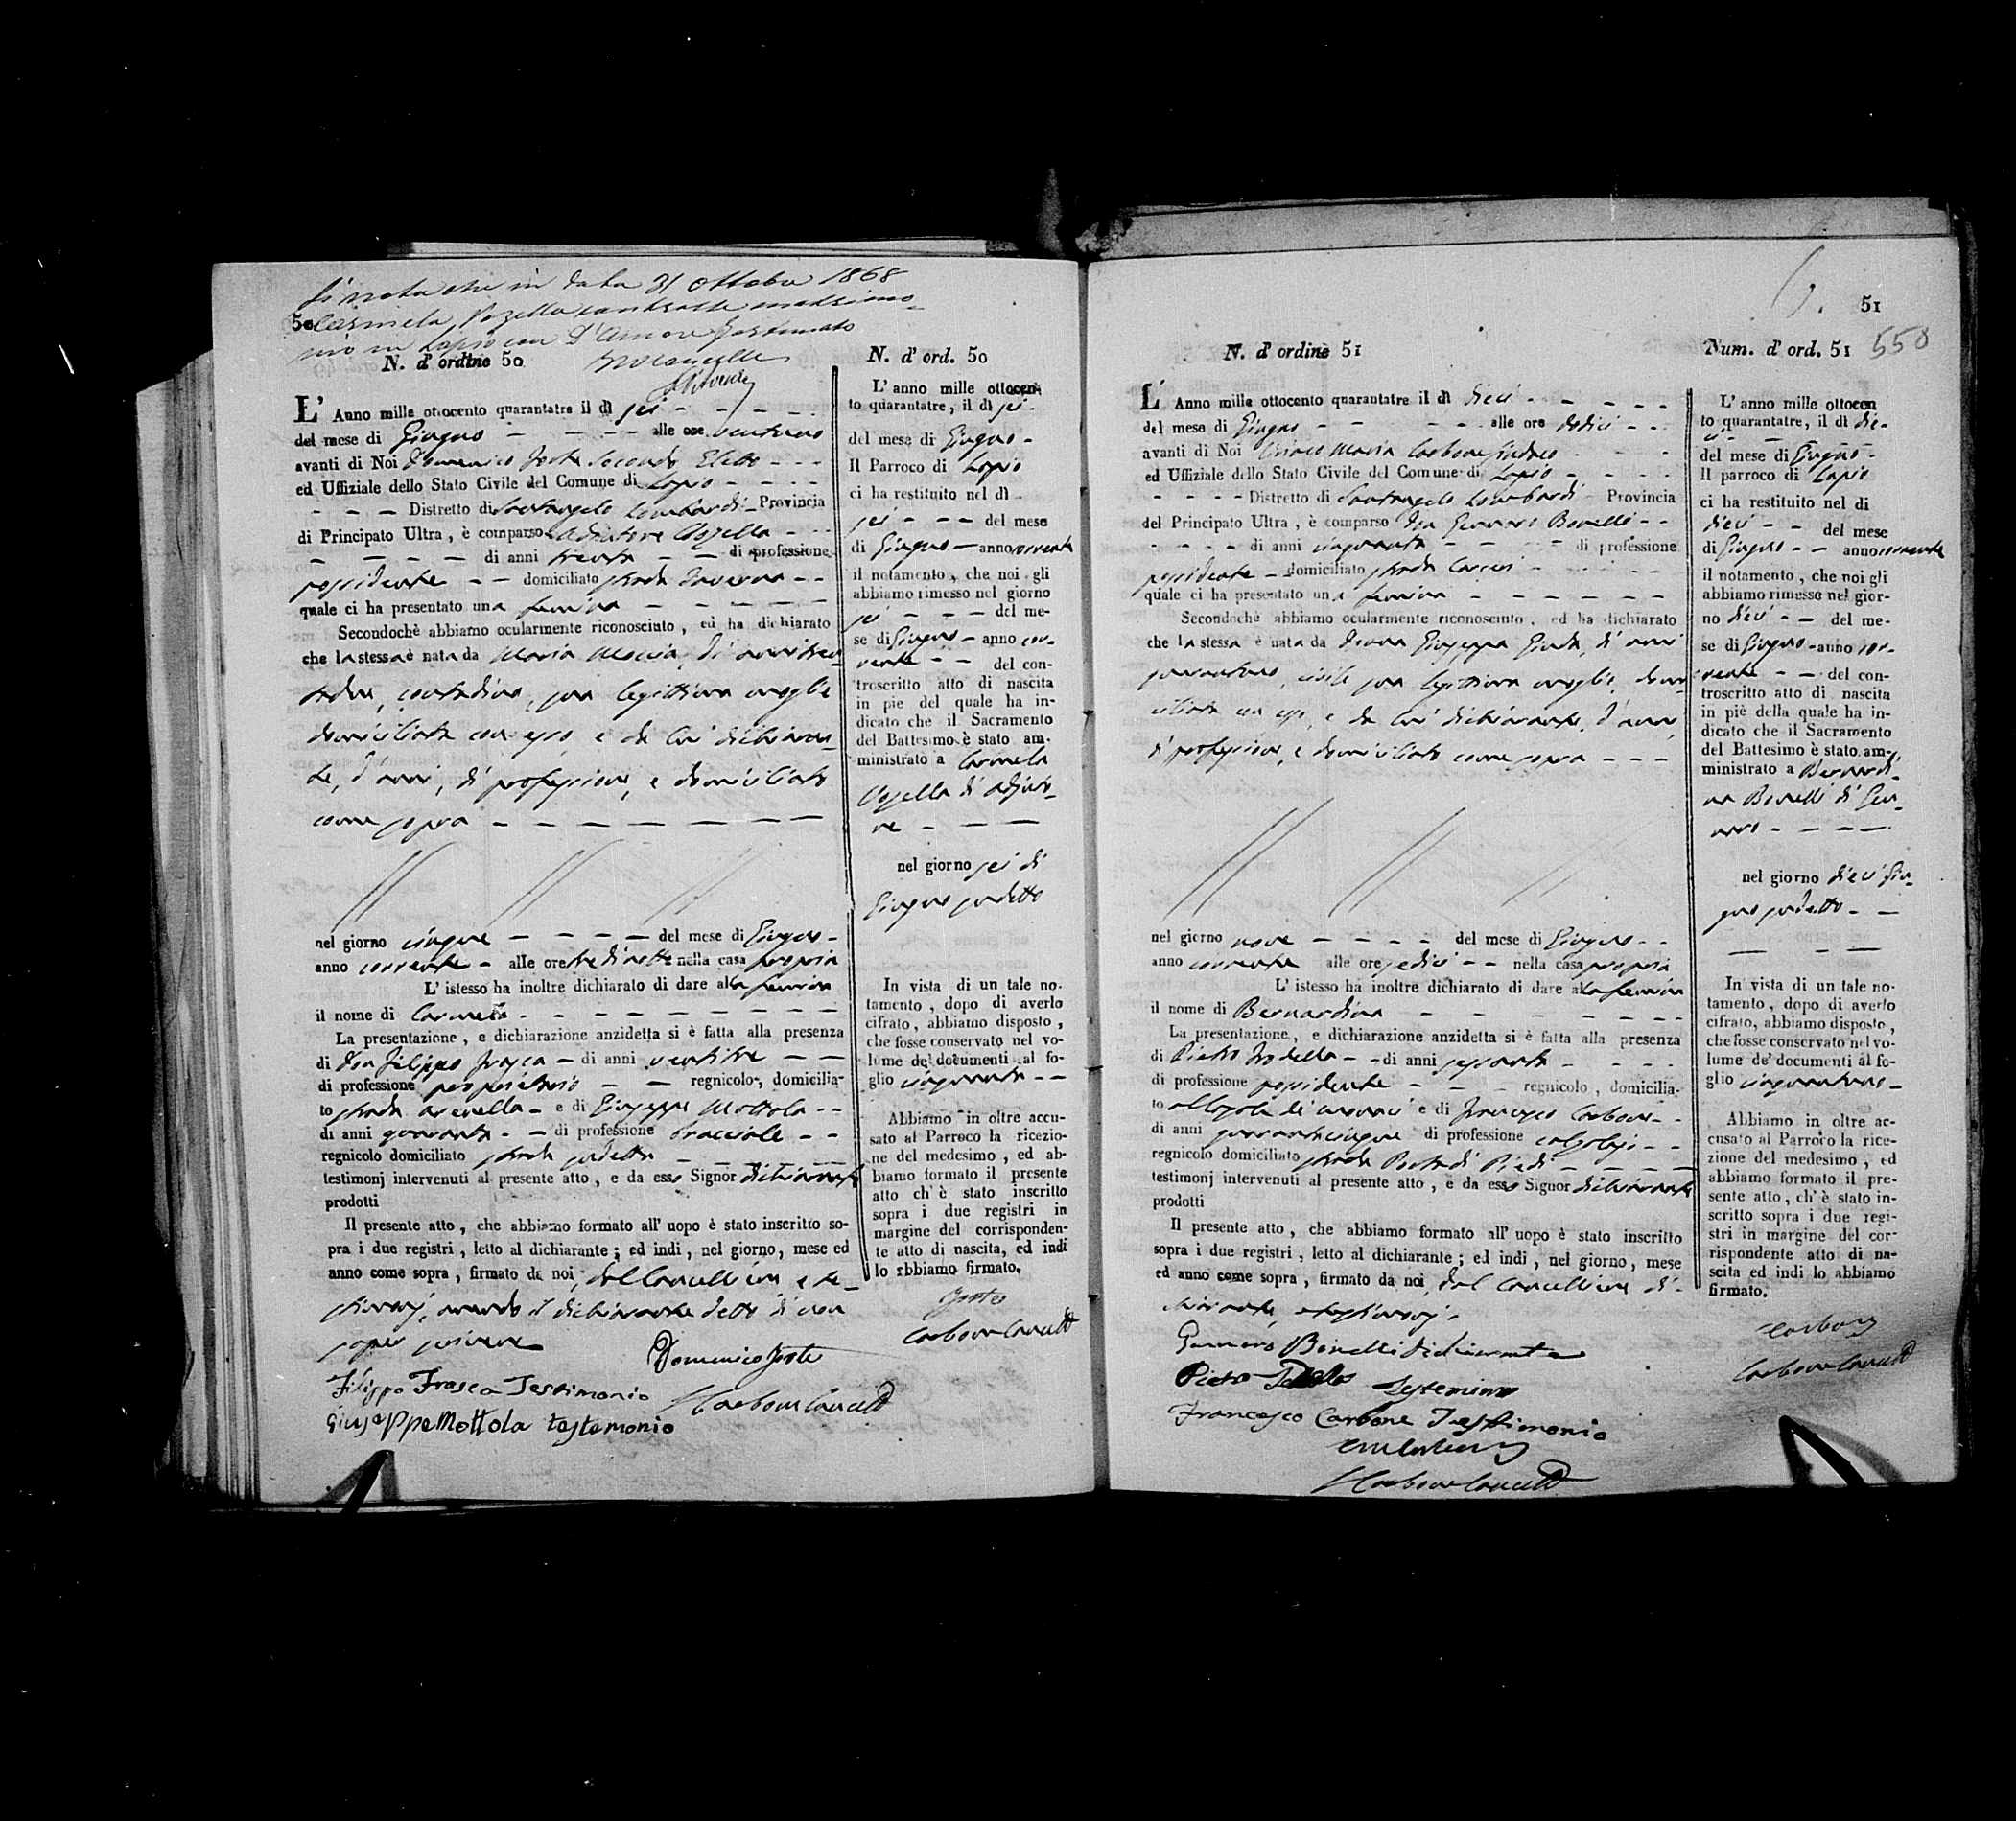 Si nota che in data 31 Ottobre 1868
50 Carmela Vozella contratto matrimo-
nio in Lapio con D'Amore
N. d' ordine 50
L' Anno mille ottocento quarantatre il dì sei - - - -
del mese di Giugno - - - - alle ore ventuno
avanti di Noi Domenico Secondo Eletto - - -
ed Uffiziale dello Stato Civile del Comune di Lapio - - - -
- - - Distretto di Santangelo Lombardi - Provincia
di Principato Ultra, è comparso Adiutore - - -
- - - - di anni trenta - - di professione
possidente - - domiciliato strada Taverna - -
quale ci ha presentato una femina - - - - -
Secondochè abbiamo ocularmente riconosciuto, ed ha dichiarato
che la stessa è nata da Maria di anni tren-
tadue, contadina, sua legittima moglie
domiciliata con esso e da lui dichiaran-
te, d'anni, di professione, e domiciliato
come sopra - - - - - - - -
nel giorno cinque - - - - del mese di Giugno -
anno corrente - alle ore tre di notte nella casa propria
L' istesso ha inoltre dichiarato di dare alla femina
il nome di Carmela - - - - - - - -
La presentazione, e dichiarazione anzidetta si è fatta alla presenza
di Don Filippo Frasca - di anni ventitre - -
di professione proprietario - - regnicolo, domicilia-
to strada - e di Giuseppe Mottola - -
di anni quaranta - - di professione bracciale - -
regnicolo domiciliato strada sudetta - - - -
testimonj intervenuti al presente atto, e da esso Signor dichiarante
prodotti
Il presente atto, che abbiamo formato all' uopo è stato inscritto so-
pra i due registri, letto al dichiarante; ed indi, nel giorno, mese ed
anno come sopra, firmato da noi, dal Cancelliere e te-
stimonj, avendo il dichiarante detto di non
saper scrivere
Domenico
Filippo Frasca Testimonio
Carbone Cancell
Giuseppe Mottola testemonio
N. d' ord. 50
L' anno mille ottocen-
to quarantatre, il dì sei -
del mese di Giugno -
Il Parroco di Lapio
ci ha restituito nel dì
sei - - - del mese
di Giugno - anno corrente
il notamento, che noi gli
abbiamo rimesso nel giorno
sei - - - del me-
se di Giugno - anno cor-
rente - - del con-
troscritto atto di nascita
in piè del quale ha in-
dicato che il Sacramento
del Battesimo è stato am-
ministrato a Carmela
di Adjuto-
re - - -
nel giorno sei di
Giugno sudetto
In vista di un tale no-
tamento, dopo di averlo
cifrato, abbiamo disposto,
che fosse conservato nel vo-
lume de' documenti al fo-
glio cinquanta - -
Abbiamo in oltre accu-
sato al Parroco la ricezio-
ne del medesimo, ed ab-
biamo formato il presente
atto ch' è stato inscritto
sopra i due registri in
margine del corrisponden-
te atto di nascita, ed indi
lo abbiamo firmato.
Carbone Cancell
51
550
N. d' ordine 51
L' Anno mille ottocento quarantatre il dì dieci - - - - -
del mese di Giugno - - - - alle ore dodici - - -
avanti di Noi Ciriaco Maria Carbone Sindaco - - -
ed Uffiziale dello Stato Civile del Comune di Lapio - - - -
- - - - Distretto di Santangelo Lombardi - Provincia
del Principato Ultra, è comparso Don Gennaro Bonelli - -
- - - - di anni cinquanta - - - - di professione
possidente - domiciliato strada Carceri - - - -
quale ci ha presentato una femina - - - - - -
Secondochè abbiamo ocularmente riconosciuto, ed ha dichiarato
che la stessa è nata da Donna Giuseppa di anni
civile sua legittima moglie, domi-
ciliata con esso, e da lui dichiarante, d'anni,
di professione, e domiciliato come sopra - - -
nel giorno nove - - - - del mese di Giugno - -
anno corrente alle ore sedici - - nella casa propria
L' istesso ha inoltre dichiarato di dare alla femina
il nome di Bernardina - - - - - - -
La presentazione, e dichiarazione anzidetta si è fatta alla presenza
di Pietro - - di anni sessanta - - - -
di professione possidente - - - regnicolo, domicilia-
to e di Francesco Carbone - -
di anni quarantacinque di professione calzolajo - -
regnicolo domiciliato strada Piedi - - - -
testimonj intervenuti al presente atto, e da esso Signor dichiarante
prodotti
Il presente atto, che abbiamo formato all' uopo è stato inscritto
sopra i due registri, letto al dichiarante; ed indi, nel giorno, mese
ed anno come sopra, firmato da noi, dal Cancelliere di-
chiarante, e testimonj.
Gennaro Bonelli dichiarante
Pietro Testemino
Francesco Carbone Testimonio
Carbone Cancell
Num. d' ord. 51
L' anno mille ottocen
to quarantatre, il dì die-
ci - - -
del mese di Giugno -
Il parroco di Lapio
ci ha restituito nel dì
dieci - - del mese
di Giugno - - anno corrente
il notamento, che noi gli
abbiamo rimesso nel gior-
no dieci - - del me-
se di Giugno - anno cor-
rente - - del con-
troscritto atto di nascita
in piè della quale ha in-
dicato che il Sacramento
del Battesimo è stato am-
ministrato a Bernardi-
na Bonelli di Gen-
naro - - - -
nel giorno dieci Giu-
gno sudetto - -
In vista di un tale no-
tamento, dopo di averlo
cifrato, abbiamo disposto,
che fosse conservato nel vo-
lume de' documenti al fo-
glio cinquantuno -
Abbiamo in oltre ac-
cusato al Parroco la rice-
zione del medesimo, ed
abbiamo formato il pre-
sente atto, ch' è stato in-
scritto sopra i due regi-
stri in margine del cor-
rispondente atto di na-
scita ed indi lo abbiamo
firmato.
Carbone
Carbone Cancell